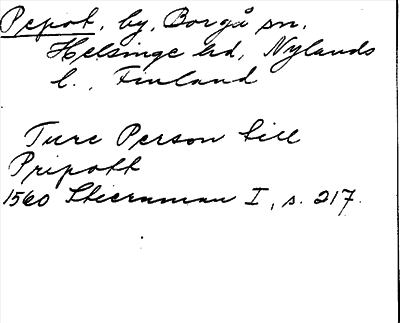 Pepot, by, Borgå sn,
Helsinge hd, Nylands
l., Finland
Ture Person till
Pripott
1560 Stiernman I, s. 217.